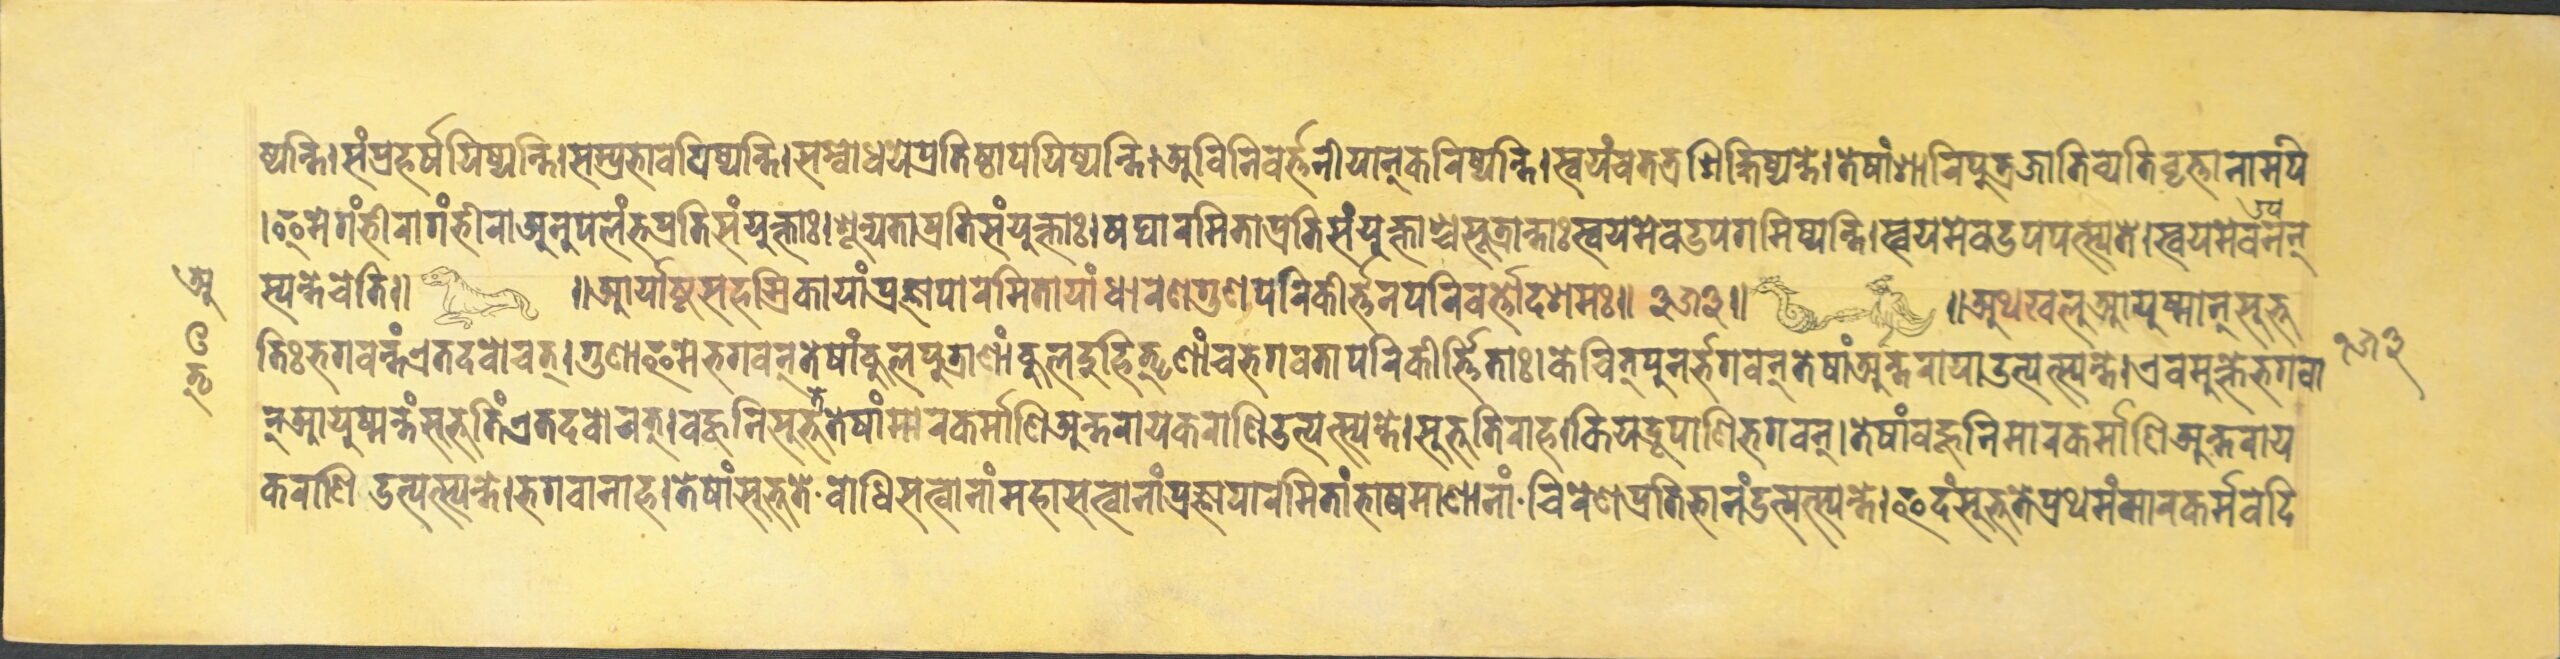 ष्यन्ति।संप्रहर्षयिष्यन्ति।सम्प्रभावयिष्यन्ति।सम्बोधयेप्रतिष्ठापयिष्यन्ति।अविनिवर्त्तनीयान्करिष्यन्ति।स्वयंचतत्रशिक्षिष्यन्ते।तेषांशारिपुत्रजातिव्यतिवृत्तानामपि
।इमेगंभीरागंभीराअनुपलंभप्रतिसंयुक्ताः।शून्यताप्रतिसंयुक्ताः।षट्पारमिताप्रतिसंयुक्ताश्चसूत्रान्ताःस्वयमेवउपगमिष्यन्ति।स्वयमेवउपपत्स्यते।स्वयमेवउपनन्
स्यन्तेचेति॥ ॥आर्याष्टसहस्रिकायांप्रज्ञापारमितायांधारणगुणपरिकीर्त्तनपरिवर्त्तोदशमः॥ ॥ ॥अथखलुआयुष्मान्सुभू
तिःभगवन्तंएतदवोचत्।गुणाइमेभगवन्तेषांकुलपुत्राणांकुलदुहितॄणांचभगवतापरिकीर्त्तिताः।केचित्पुनर्भगवन्तेषांअन्तरायाउत्पत्स्यन्ते।एवमुक्तेभगवा
न्आयुष्मन्तंसुभूतिंएतदवोचत्।वहूनिसुभूतेतेषांमारकर्माणिअन्तरायकराणिउत्पत्स्यन्ते।सुभूतिराह।कियद्रूपाणिभगवन्।तेषांवहूनिमारकर्माणिअन्तराय
कराणिउत्पत्स्यन्ते।भगवानाह।तेषांसुभूते·वोधिसत्वानांमहासत्वानांप्रज्ञापारमितांभाषमाणानां·चिरेणप्रतिभानंउत्पत्स्यन्ते।इदंसुभूतेप्रथमंमारकर्मवेदि